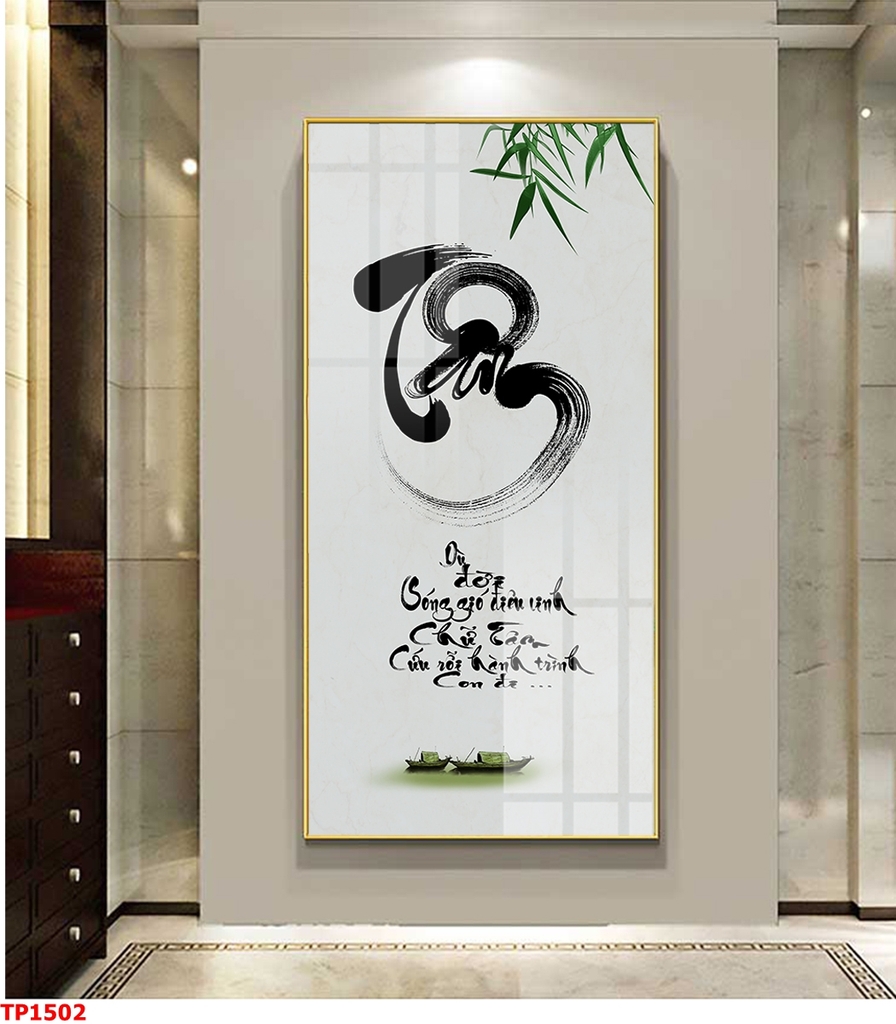 Tâm
Dù
đời
Sóng gió điêu linh
Chữ Tâm
Cứu rỗi hành trình
Con đi ...
TP1502